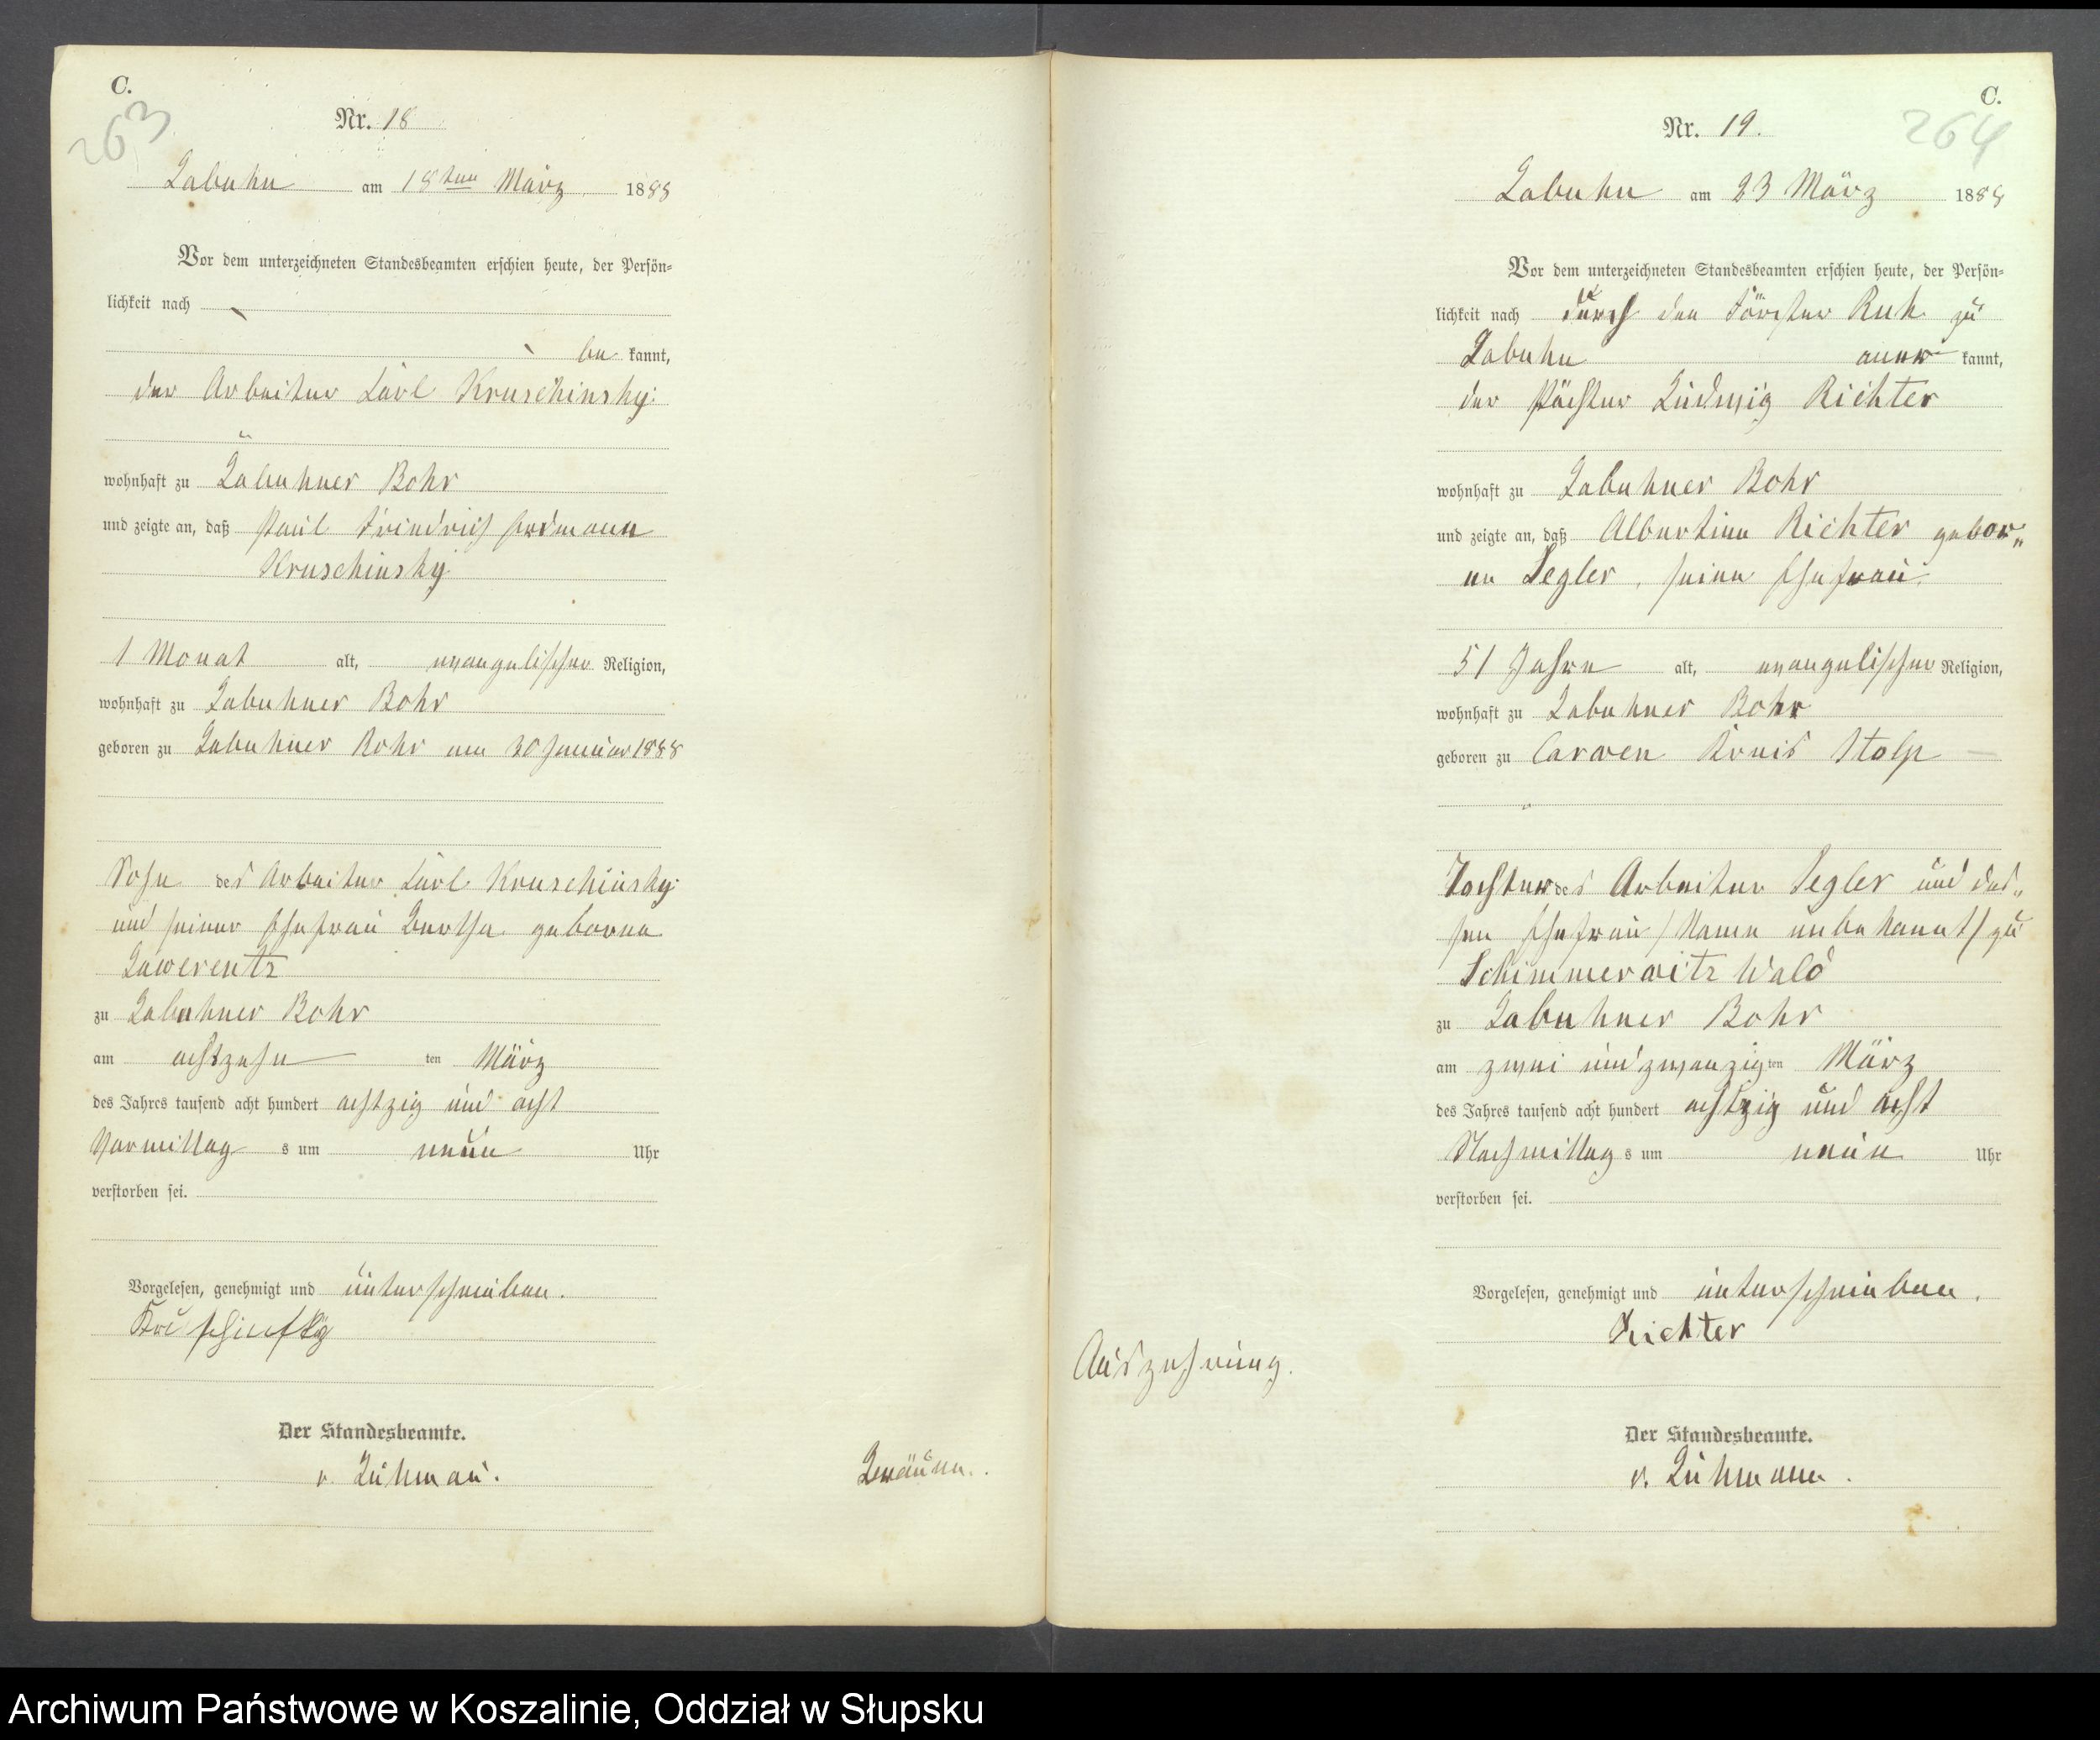 C.
263
Nr. 18
Labuhn am 18ten März 1888
Vor dem unterzeichneten Standesbeamten erschien heute, der Persön-
lichkeit nach
be kannt,
der Arbeiter Carl Kruschinsky
wohnhaft zu Labuhner Bohr
und zeigte an, daß Paul Friedrich Erdmann
Kruschinsky
1 Monat alt, evangelischer Religion,
wohnhaft zu Labuhner Bohr
geboren zu Labuhner Bohr am 30 Januar 1888
Sohn des Arbeiter Carl Kruschinsky
und seiner Ehefrau Bertha geborne
Lawerentz
zu Labuhner Bohr
am achtzehn ten März
des Jahres tausend acht hundert achtzig und acht
Vormittag s um neun Uhr
verstorben sei.
Vorgelesen, genehmigt und unterschrieben.
Kruschinsky
Der Standesbeamte.
v.
C.
264
Nr. 19.
Labuhn am 23 März 1888
Vor dem unterzeichneten Standesbeamten erschien heute, der Persön-
lichkeit nach durch den Förster Ruh zu
Labuhn aner kannt,
der Pächter Ludwig Richter
wohnhaft zu Labuhner Bohr
und zeigte an, daß Albertine Richter gebor„
ne Segler, seine Ehefrau.
51 Jahre alt, evangelischer Religion,
wohnhaft zu Labuhner Bohr
geboren zu Carwen Kreis Stolp
Tochter des Arbeiter Segler und des„
sen Ehefrau /Name unbekannt/ zu
Schimmerwitz Wald
zu Labuhner Bohr
am zwei und zwanzig ten März
des Jahres tausend acht hundert achtzig und acht
Nachmittag s um neun Uhr
verstorben sei.
Vorgelesen, genehmigt und unterschrieben.
Richter
Auszehrung.
Der Standesbeamte.
v.
Archiwum Państwowe w Koszalinie, Oddział w Słupsku